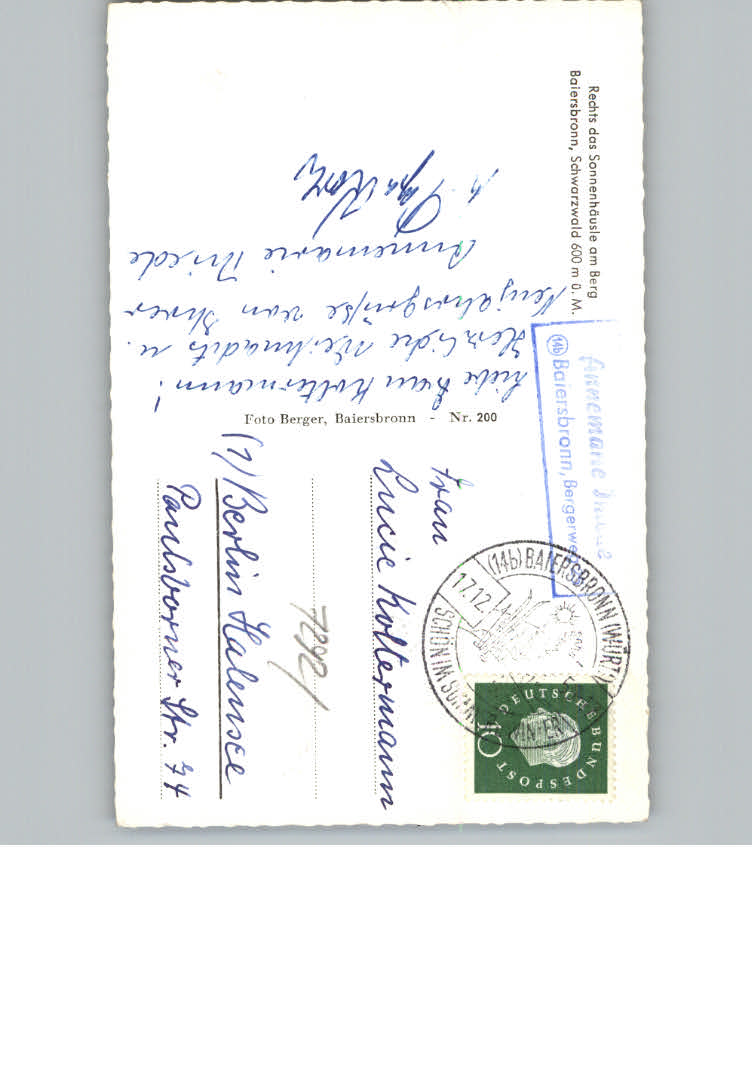 Rechts das Sonnenhäusle am Berg
Baiersbronn, Schwarzwald 600 m ü. M.
Liebe Frau Koltermann!
Herzliche Weihnachts u.
Neujahrsgrüße von Ihrer
Annemarie Thiede
Foto Berger, Baiersbronn - Nr. 200
Annemarie Thiede
(14b) Baiersbronn, Bergerwe
(14b) BAIERSBRONN (WÜRTT
17.12
SCHÖN IM SOMMER
DEUTSCHE BUNDESPOST
10
Frau
Lucie Koltermann
(1) Berlin Halensee
Paulsborner Str. 74
7292/